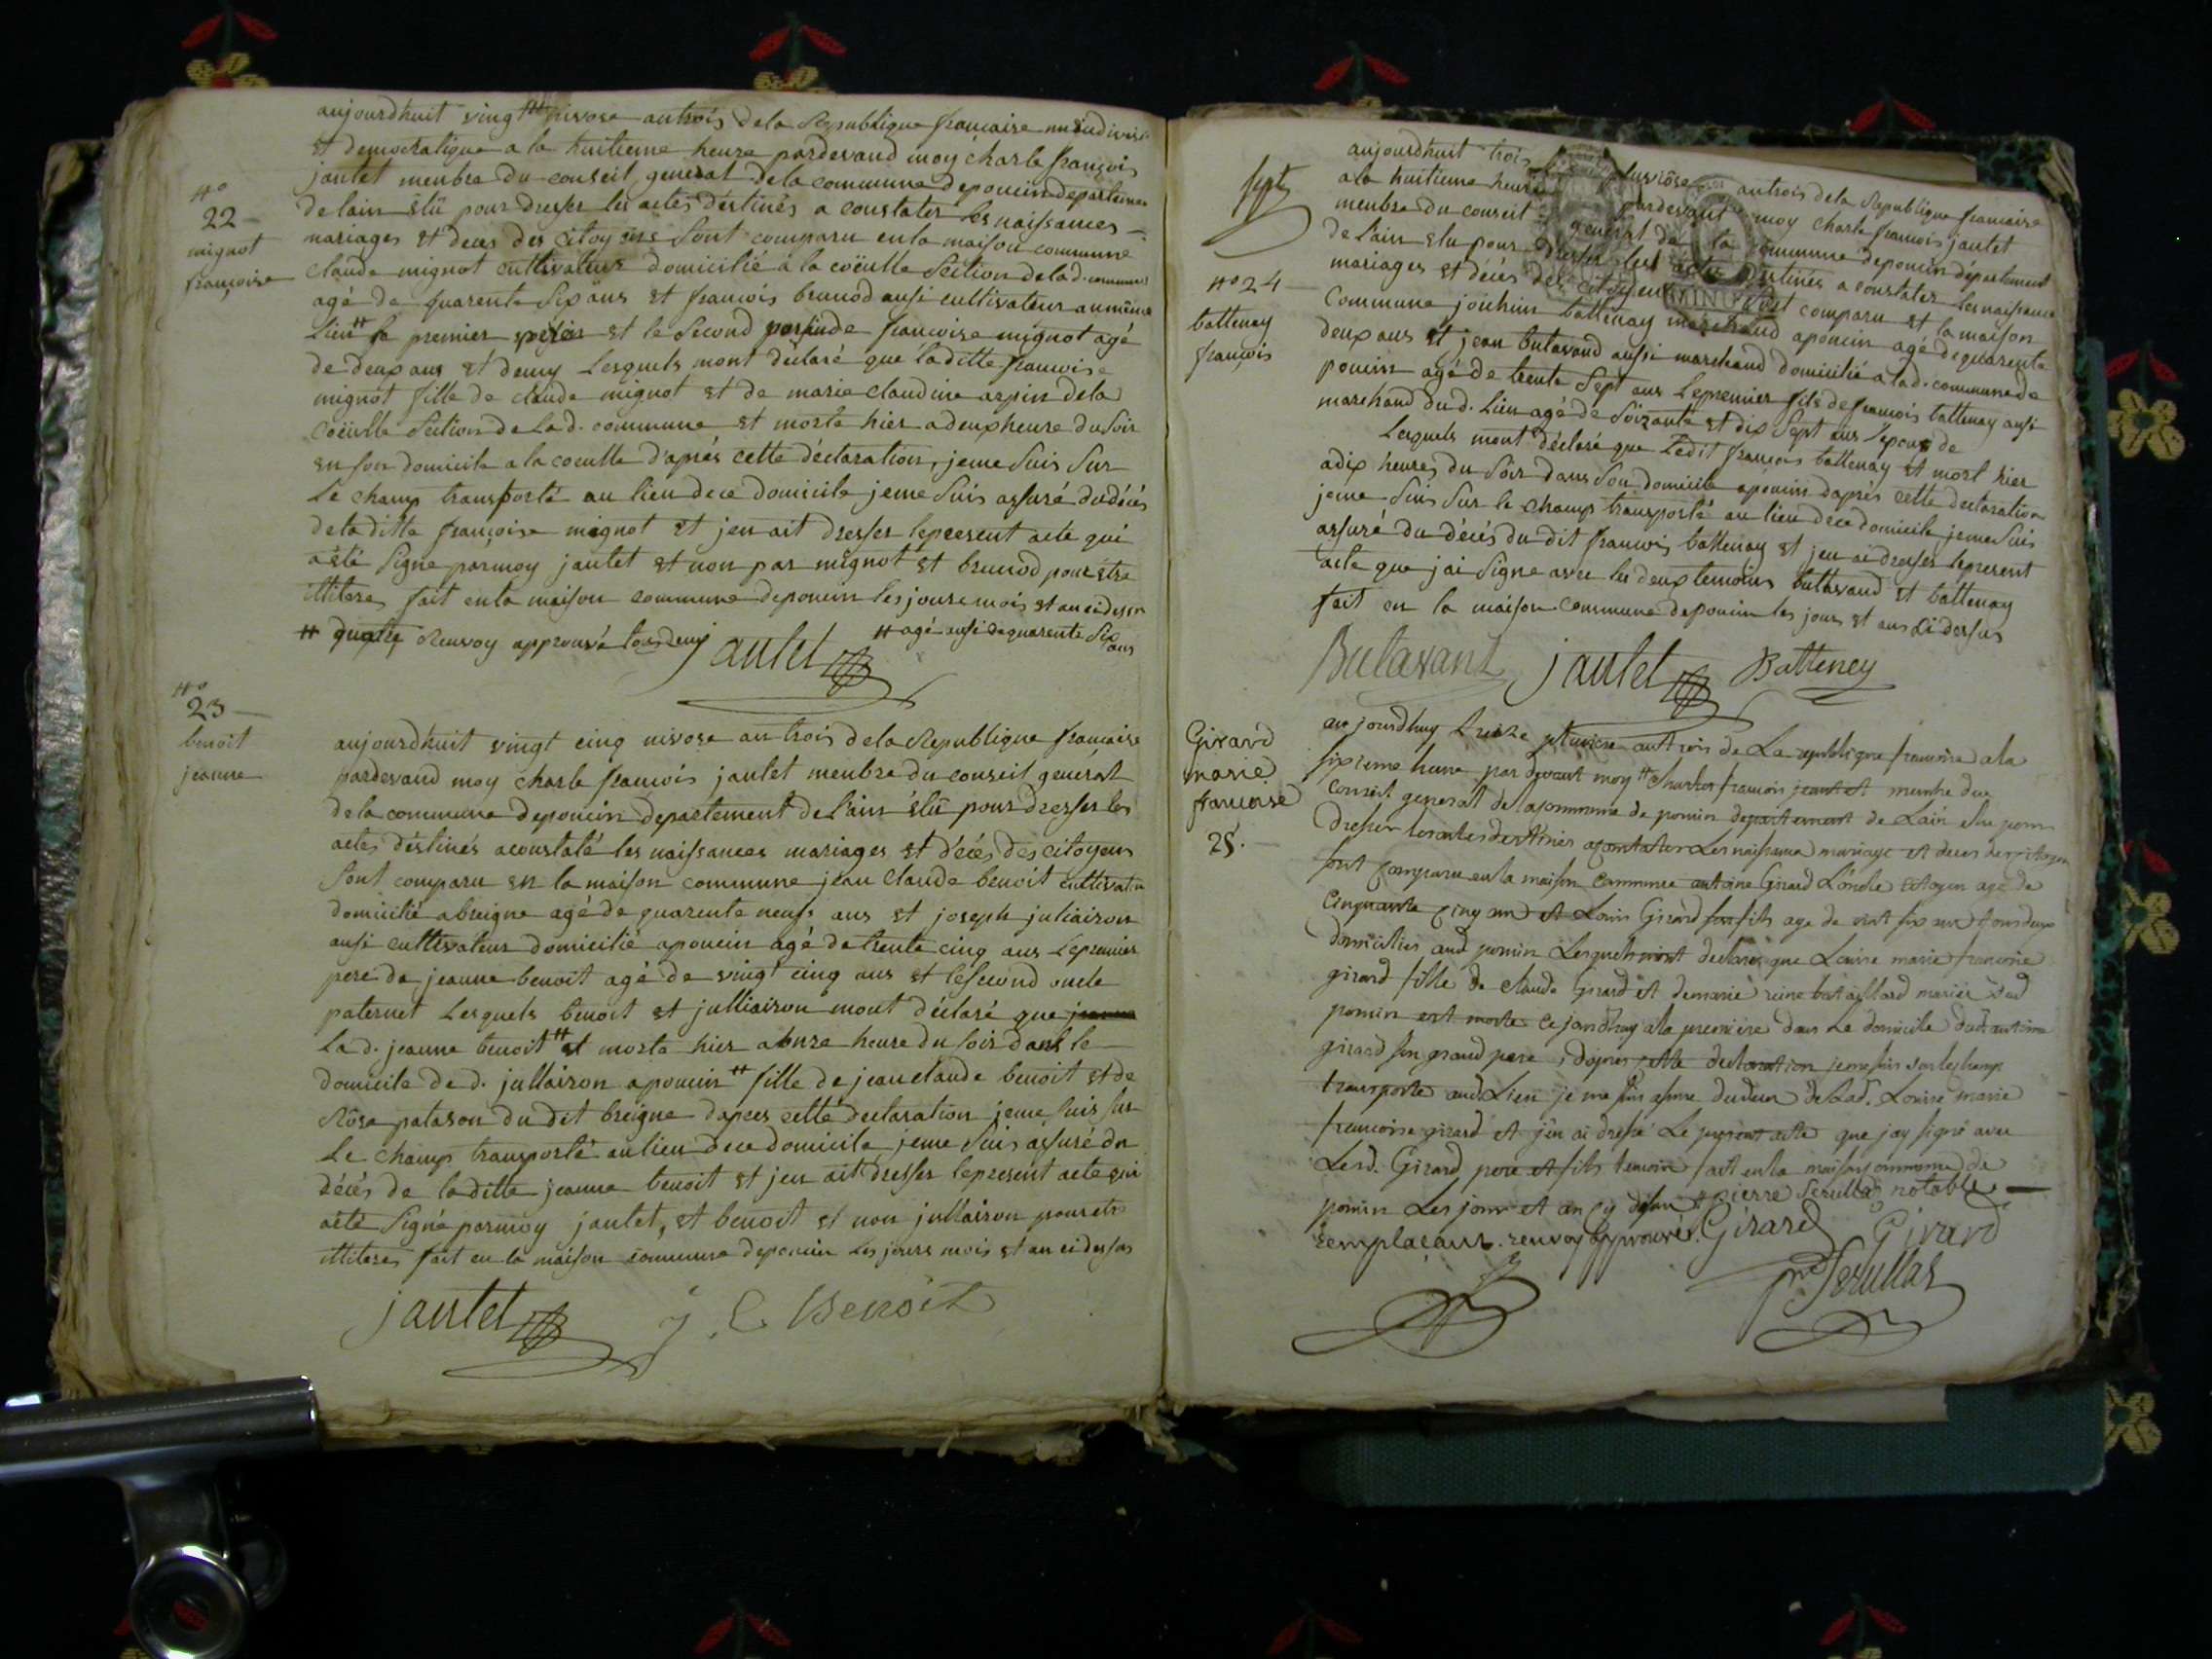 aujourdhuit vingt # nivose antrois dela Republique francaise un indivis
et democratique a la huitieme heure pardevand moy charle françois
jantet menbre du conseil general dela commune deponcin departemen
delain elû pour dresser les actes déstinés a constater les naissances
mariages et deces des citoyens sont comparu enla maison commune
claude mignot cultivateur domicilié à la coëulle Section delad. commune
agé de quarente six ans et francois brunod ausi cultivateur au même
Lieu # le premier et le second de francoise mignot agé
de deux ans et demy Lesquels mont déclaré que laditte francoise
mignot fille de claude mignot et de marie claudine arpin dela
coëulle Section de Lad. commune et morte hier a deux heure du soir
en son domicile a la coeulle d'aprés cette déclaration, jeme suis sur
le champ transporté au lieu dece domicile jeme suis assuré dudécés
deladitte françoise mignot et jen ait dresser lepresent acte qui
a été signé parmoy jantet et non par mignot et brunod pour être
illiteres fait enla maison commune deponcin les jours mois et an cidessu
# Renvoy approuvé jantet # agé ausi dequarente six ans
N° 22 mignot françoise
N° 23 benoit jeanne
aujourdhuit vingt cinq nivose an trois dela Republique francaise
pardevand moy charle francois jantet menbre du conseil general
dela commune deponcin departement de l'ain élû pour dresser les
actes déstinés aconstaté les naissances mariages et décés des citoyens
sont comparu en la maison commune jean claude benoit cultivateu
domicilié abreigne agé de quarente neuf ans et joseph juliairon
ausi cultivateur domicilié aponcin agé de trente cinq ans Lepremier
pere de jeanne benoit agé de vingt cinq ans et lesecond oncle
paternel Lesquels benoit et julliairon mont déclaré que jeanne
La d. jeanne benoit # et morte hier a onze heure du soir dans le
domicile de d. jullairon aponcin # fille de jean claude benoit et de
Rôse patason du dit breigne dapres cette déclaration jeme suis sur
Le champ transporté aulieu dece domicile jeme suis assuré du
décés de laditte jeanne benoit et jen ait dresser lepresent acte qui
aété signé parmoy jantet, et benoit et non jullairon pour etre
illiteres fait en la maison commune deponcin les jours mois et an cidessus
jantet j. C Benoit
sept
N° 24 battenay françois
aujourdhuit trois pluviôse antrois dela Republique francaise
ala huitieme heure pardevant moy charle francois jantet
menbre du conseil general de la commune deponcin département
de l'ain elu pour dresser les acte destinés a constater les naissance
mariages et décés des citoyens sont comparu et la maison
commune joächim battenay marchand aponcin agé dequarente
deux ans et jean butavand aussi marchand domicilié a lad. commune de
poncin agé de trente sept ans Lepremier fils de francois battenay ausi
marchand dud. Lieu agé de soixante et dix sept ans l'epoux de
Lesquels mont déclaré que Ledit françois battenay et mort hier
a dix heures du soir dans son domicile aponcin daprés cette déclaration
jeme suis sur le champ transporté au lieu dece domicile jeme suis
assuré du décés du dit francois battenay et jen ai dresser lepresent
acte que jai signe avec les deux temoins buttavand et battenay
fait en la maison commune deponcin les jours et ans cidessus
Butavant jantet Batteney
Girard marie françoise 25.
aujourdhuy treize pluviose an trois de La republique francoise ala
sixieme heure par devant moy # Charles francois jantet menbre du
conseil general de la commune de poncin departement de Lain elu pour
dresser les actes destinés a constater Les naissance mariage et deces des citoyen
sont comparu enla maison commune antoine Girard citoyen agé de
cinquante cinq ans et Louis Girard son fils age de vint six ans tous deux
domiciliés aud poncin Lesquels mont declarés que Louise marie francoise
girard fille de claude girard et demarie reine bataillard mariés aud
poncin est morte cejourdhuy ala premiere dans Le domicile dud. antoine
girard son grand pere, d'apres cette declaration jeme suis sur lechamp
transporté aud. Lieu je me suis assuré dudeces de Lad. Louise marie
francoise girard et j'en ai dressé Le present acte que jay signé avec
Lesd. Girard pere et fils temoin fait enla maison commune de
poncin Les jour et an cy dessu # pierre Serullas notable
remplacant. renvoy approuvés. Girard Girard
pre Serullas